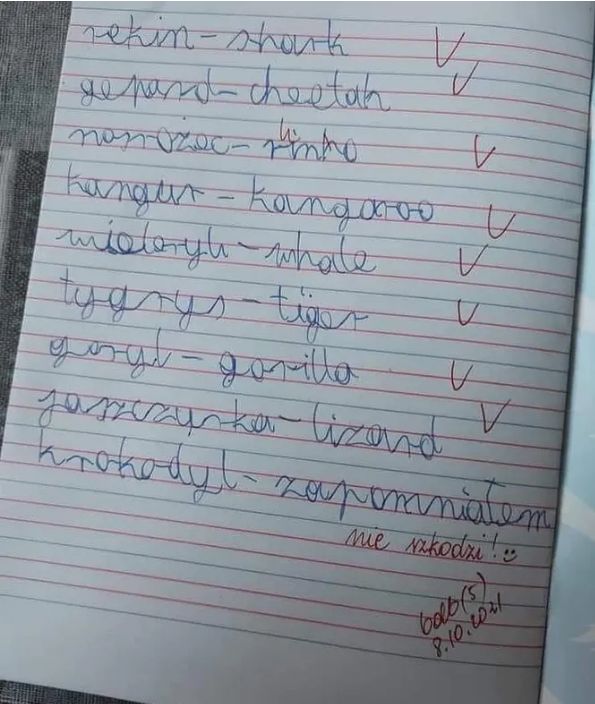 rekin - shark
gepard - cheetah
hi
nosrożec - rinho
kangur - kangaroo
wieloryb - whale
tygrys - tiger
goryl - gorilla
jaszczurka - lizard
krokodyl - zapomniałem
nie szkodzi! ☺
bdb(5)
8.10.2021